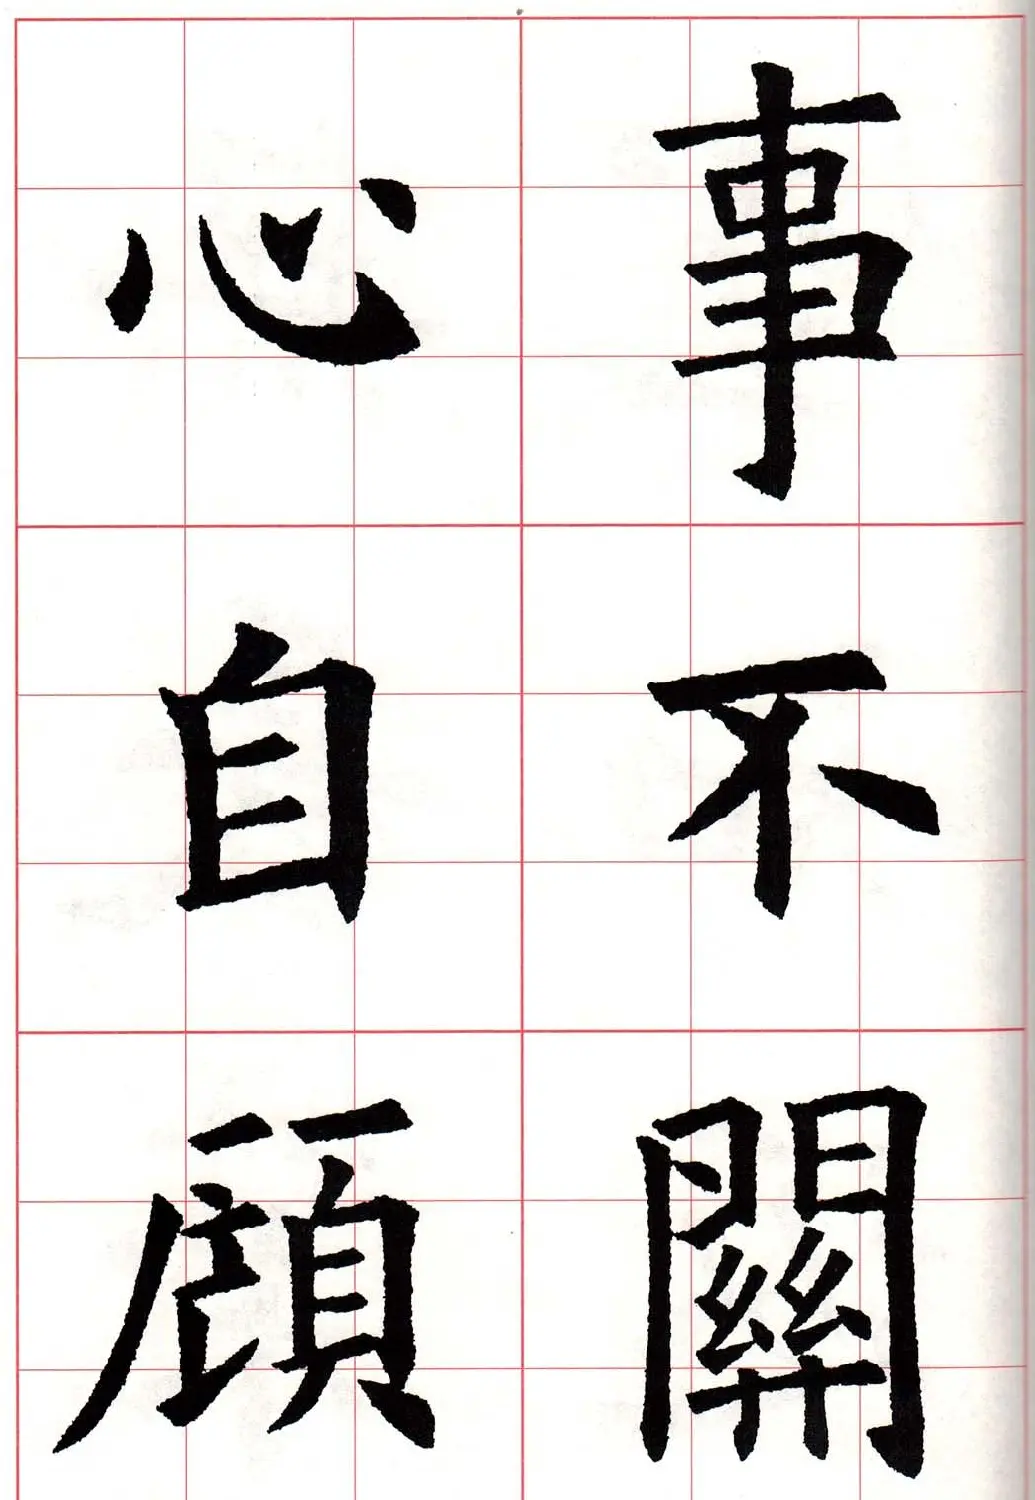 事不關
心自顧